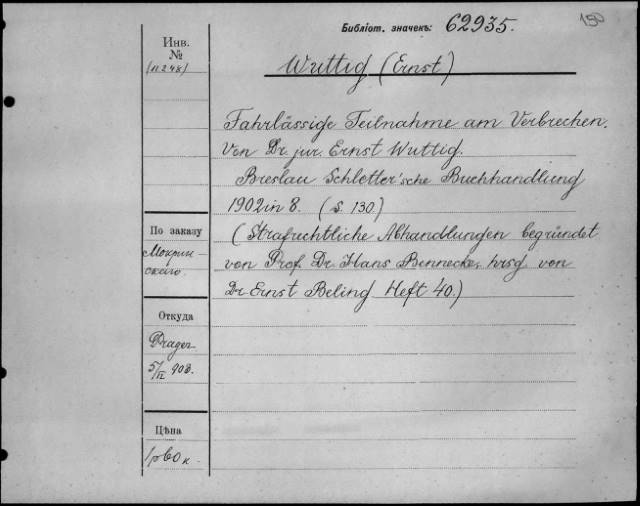 Библіот. значекъ: 62935.
150
Инв.
№
(11248)
Wuttig (Ernst)
Fahrlässige Teilnahme am Verbrechen.
Von Dr. jur. Ernst Wuttig.
Breslau Schletter'sche Buchhandlung
1902 in 8. (S. 130.)
(Strafrechtliche Abhandlungen begründet
von Prof. Dr. Hans Bennecke, hrsg von
Dr Ernst Beling Heft 40.)
По заказу
Мокрин-
скаго.
Откуда
Prager
5/II 903.
Цѣна
1 р 60 к